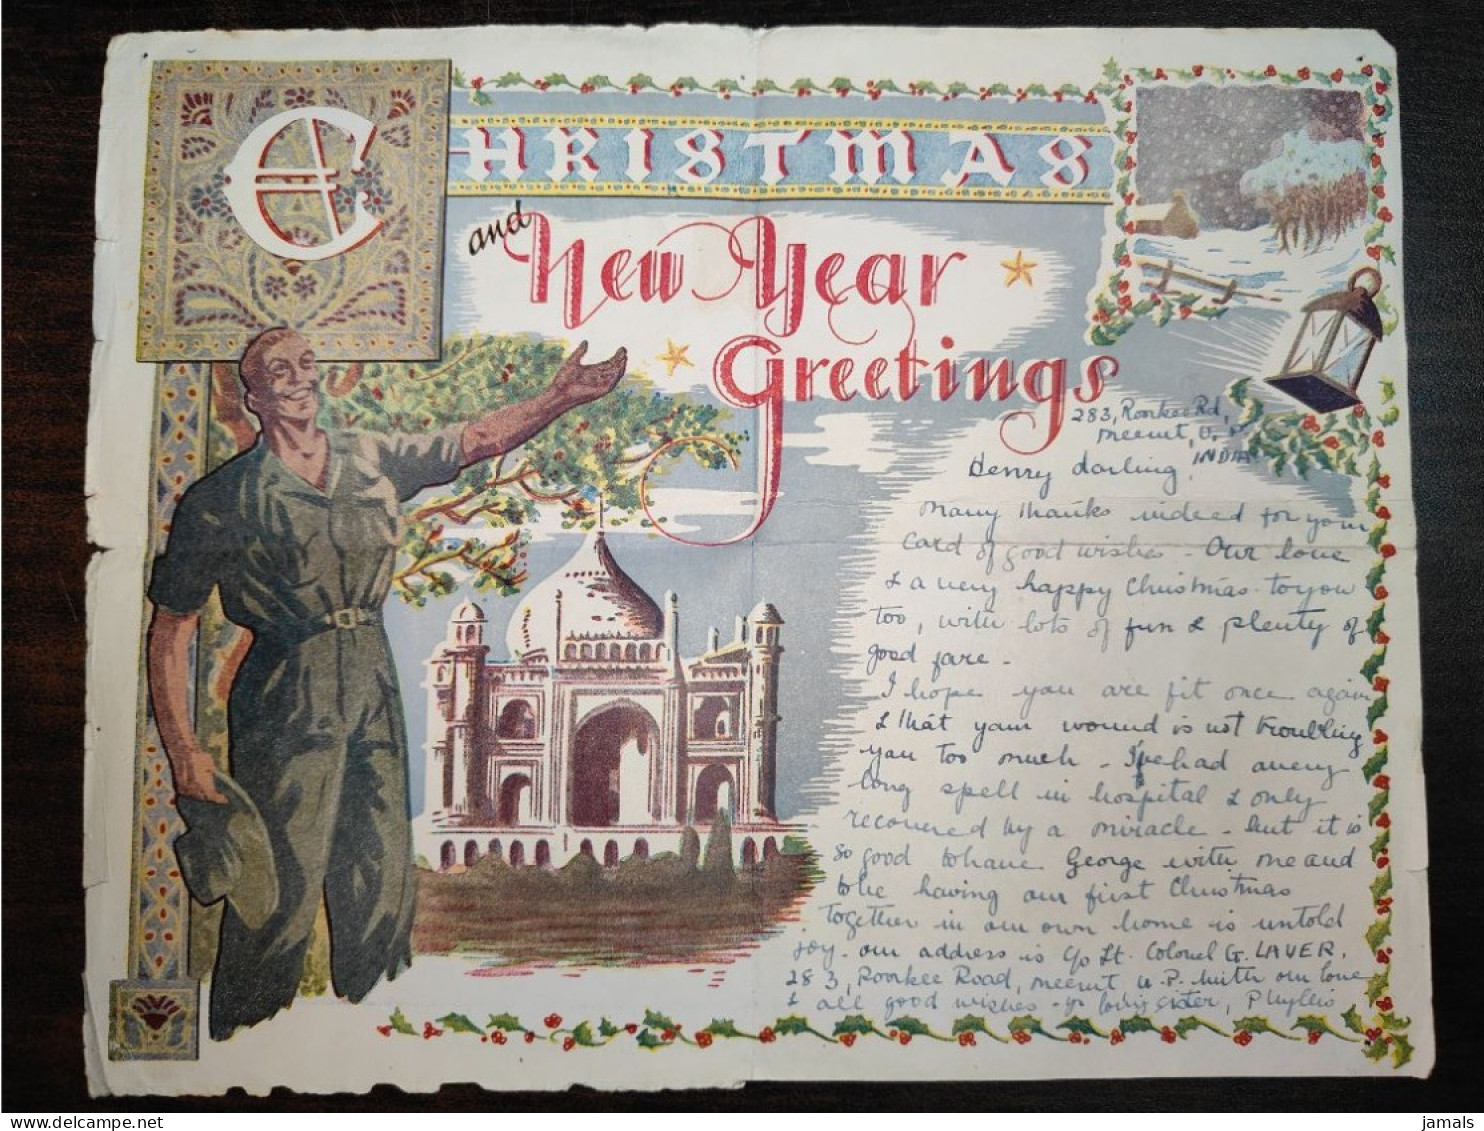 CHRISTMAS
and New Year
Greetings
283, Roorkee Rd,
Meerut, U.P
INDIA
Henry darling,
Many thanks indeed for your
card of good wishes - Our love
& a very happy Christmas to you
too, with lots of fun & plenty of
good fare -
I hope you are fit once again
& that your wound is not troubling
you too much - I've had a very
long spell in hospital & only
recovered by a miracle - but it is
so good to have George with me and
to be having our first Christmas
together in our own home is untold
joy - our address is c/o Lt. Colonel G. LAVER,
283, Roorkee Road, Meerut U.P. With our love
& all good wishes - yr loving sister, Phyllis
jamals